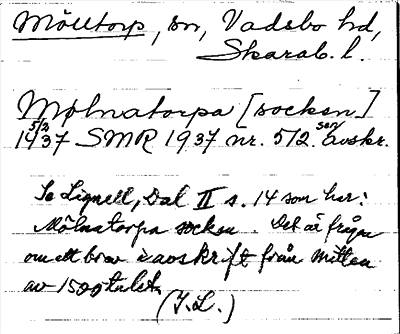 Mölltorp, sn, Vadsbo hd,
Skarab. l.
Mølnatorpa [socken]
5/2 1437 SMR 1937 nr. 512. sen avskr.
Se Lignell, Dal II s. 14 som har:
Mölnatorpa socken. Det är frågan
om ett brev i avskrift från mitten
av 1500talet.
(I.L.)